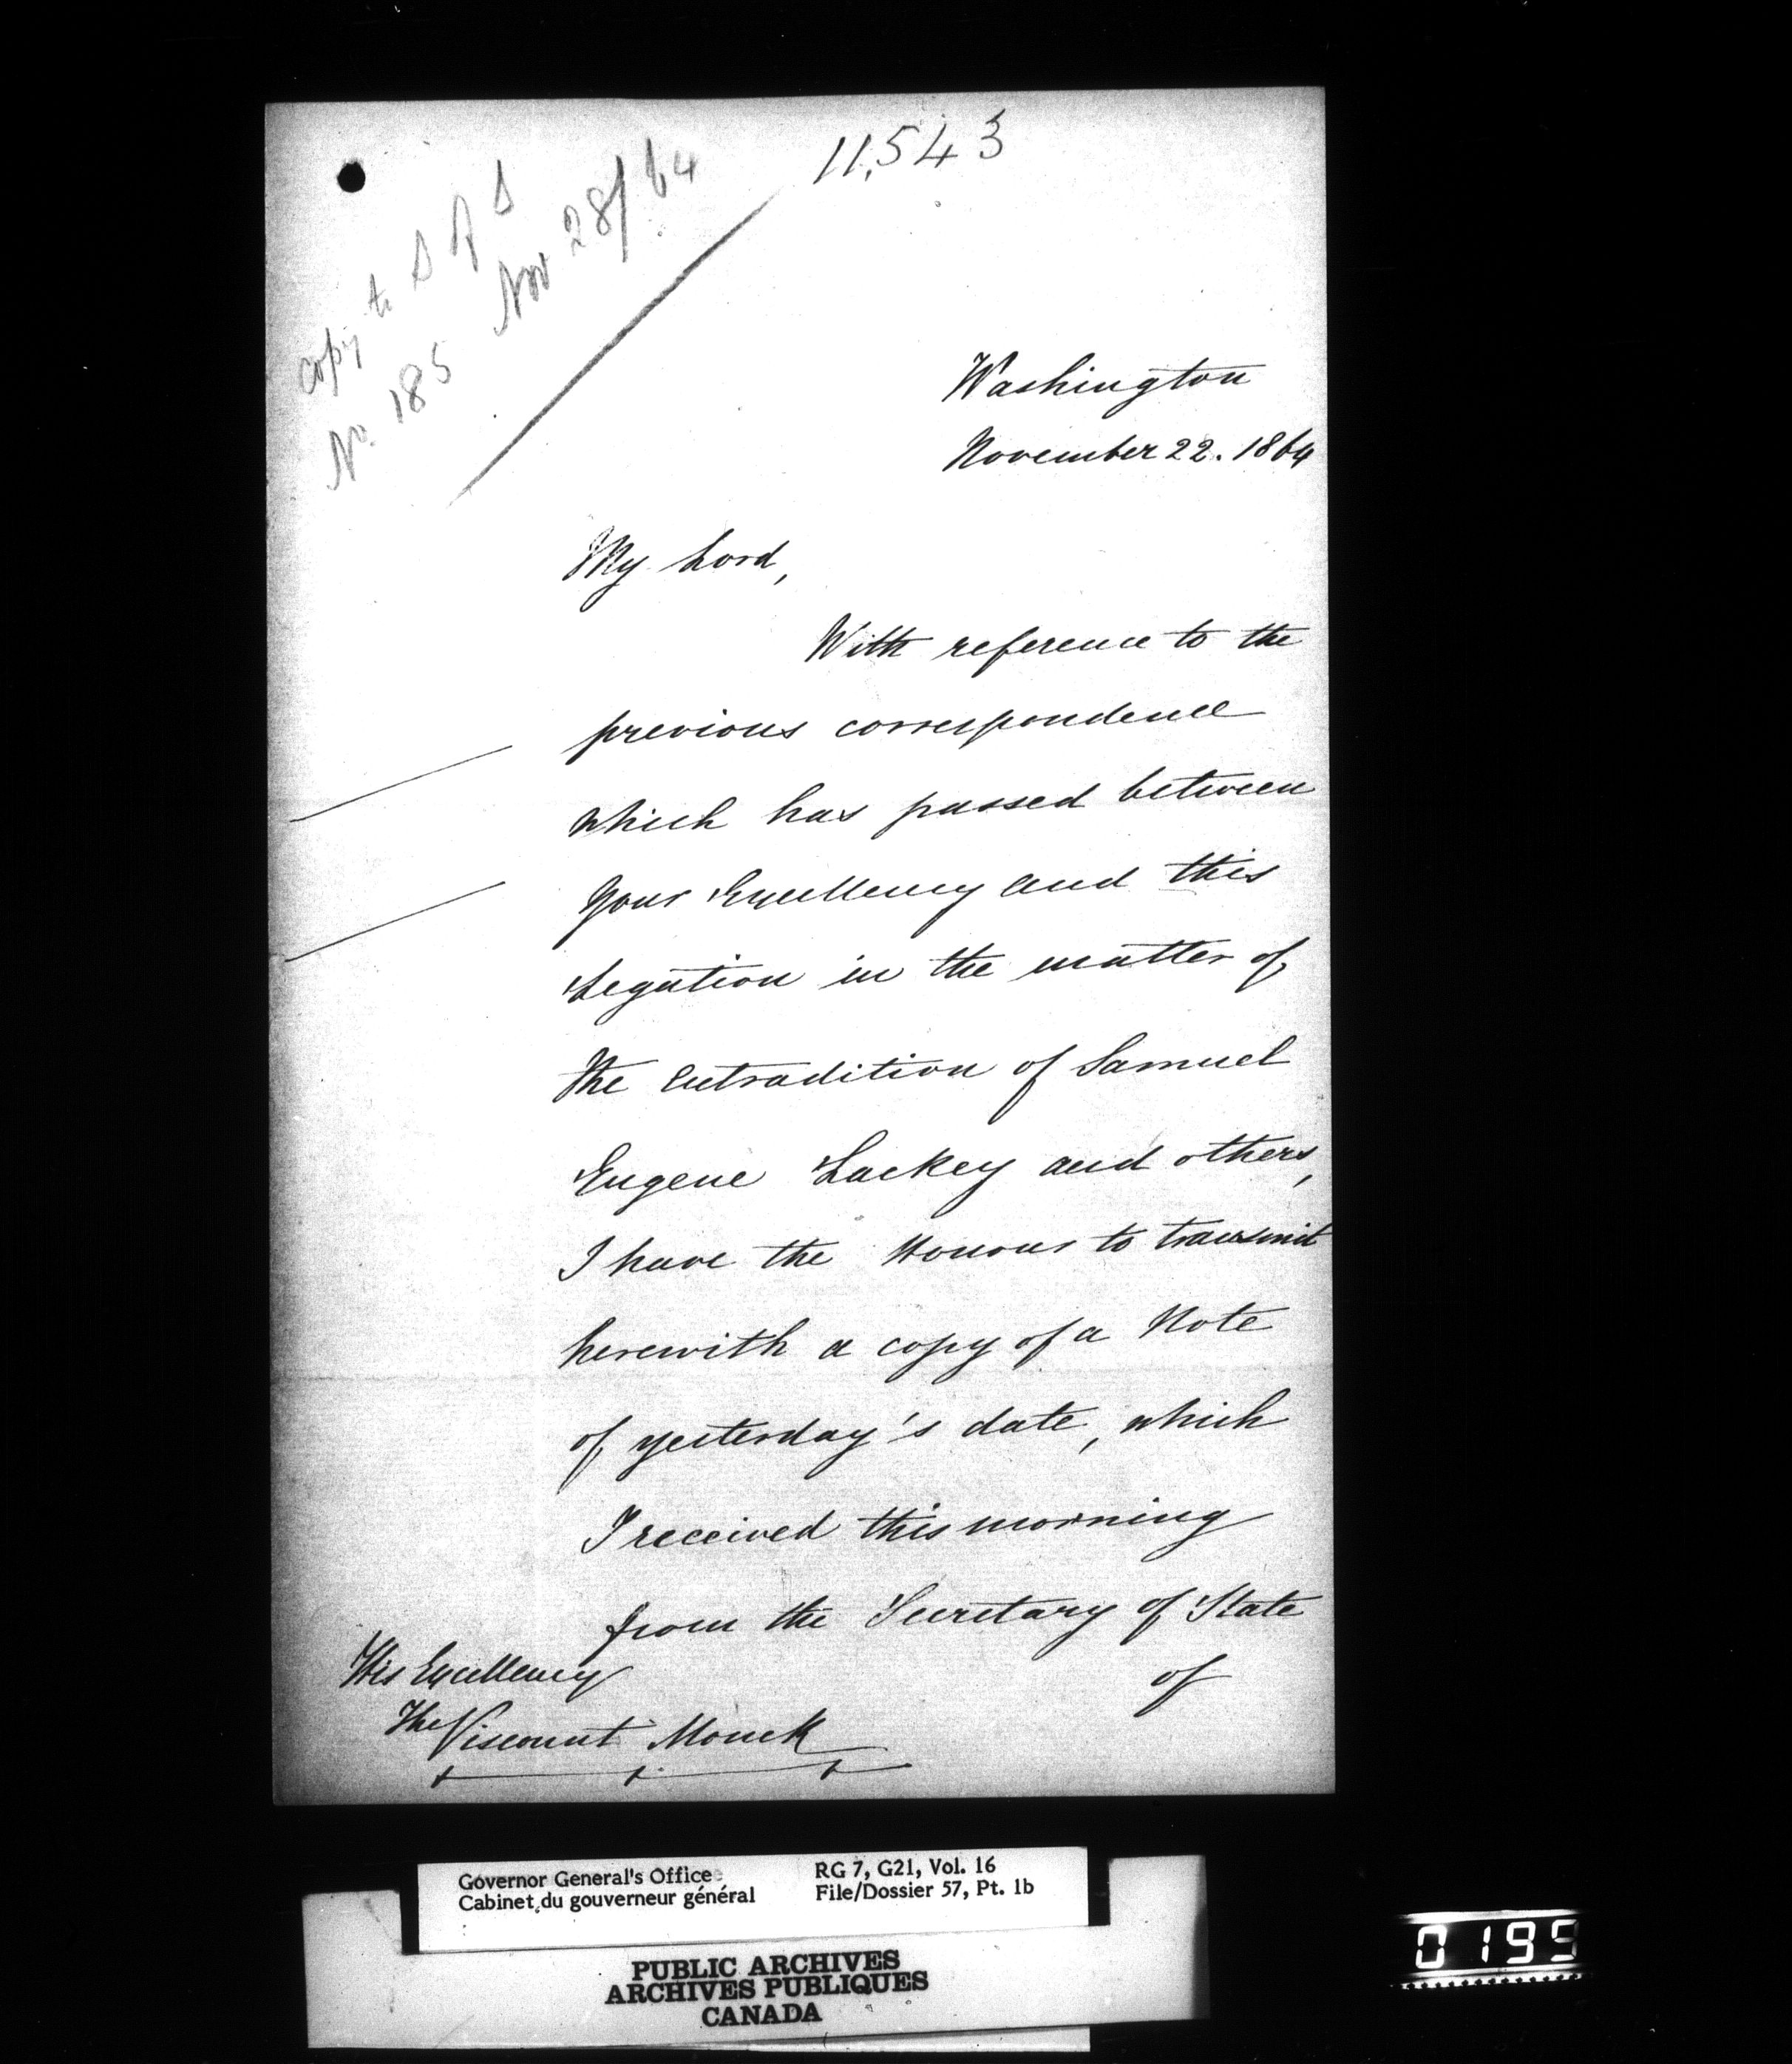 11,543
copy to S of S
No. 185 Nov 28/64
Washington
November 22. 1864
My Lord,
With reference to the
previous correspondence
which has passed between
Your Excellency and this
Legation in the matter of
the Extradition of Samuel
Eugene Lackey and others,
I have the Honour to transmit
herewith a copy of a Note
of yesterday's date, which
I received this morning
from the Secretary of State
of
His Excellency
The Viscount Monck
Governor General's Office
Cabinet du gouverneur général
RG 7, G21, Vol. 16
File/Dossier 57, Pt. 1b
PUBLIC ARCHIVES
ARCHIVES PUBLIQUES
CANADA
0195